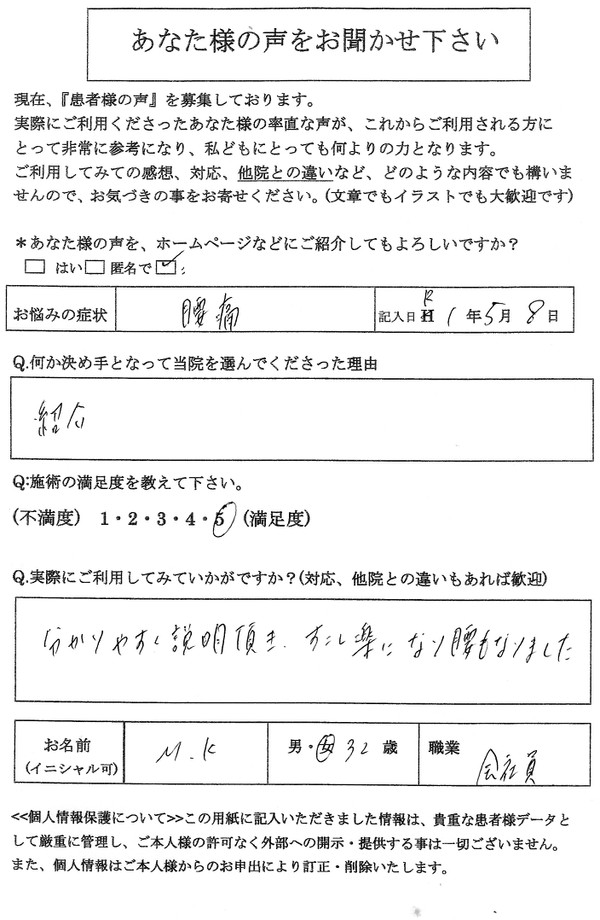 あなた様の声をお聞かせ下さい
現在、『患者様の声』を募集しております。
実際にご利用くださったあなた様の率直な声が、これからご利用される方に
とって非常に参考になり、私どもにとっても何よりの力となります。
ご利用してみての感想、対応、他院との違いなど、どのような内容でも構いま
せんので、お気づきの事をお寄せください。(文章でもイラストでも大歓迎です)
＊あなた様の声を、ホームページなどにご紹介してもよろしいですか？
□ はい □ 匿名で ☑ :
お悩みの症状 腰痛 記入日 H R 1 年 5 月 8 日
Q.何か決め手となって当院を選んでくださった理由
紹介
Q:施術の満足度を教えて下さい。
(不満度) 1・2・3・4・5 (満足度)
Q.実際にご利用してみていかがですか？(対応、他院との違いもあれば歓迎)
分かりやすく説明頂き、すこし楽になり腰もなりました
お名前 (イニシャル可) M.K 男・女 32 歳 職業 会社員
<<個人情報保護について>>この用紙に記入いただきました情報は、貴重な患者様データと
して厳重に管理し、ご本人様の許可なく外部への開示・提供する事は一切ございません。
また、個人情報はご本人様からのお申出により訂正・削除いたします。